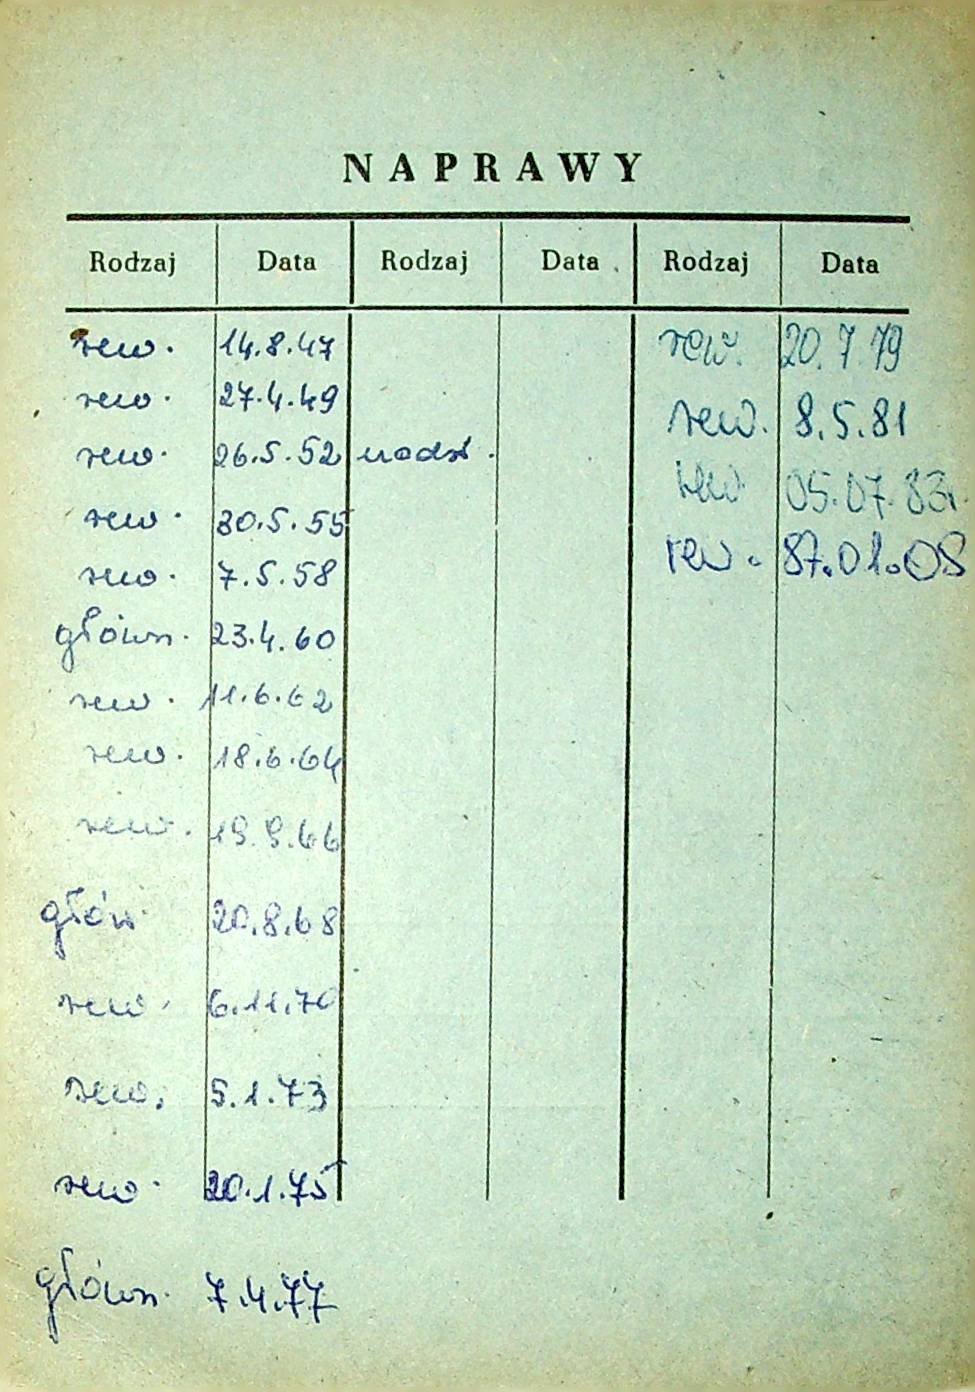 NAPRAWY
Rodzaj Data Rodzaj Data Rodzaj Data
rew. 14.8.47 rew. 20.7.79
rew. 27.4.49 rew. 8.5.81
rew. 26.5.52 rew 05.07.83r.
rew. 30.5.55 rew. 87.01.08
rew. 7.5.58
główn. 23.4.60
rew. 11.6.62
rew. 18.6.64
rew. 19.9.66
głów. 20.8.68
rew. 6.11.70
rew. 5.1.73
rew. 20.1.75
główn. 7.4.77